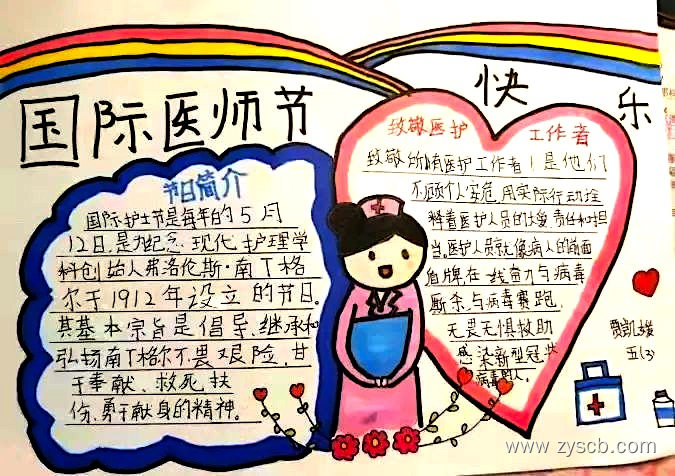 国际医师节
快乐
节日简介
国际护士节是每年的5月
12日,是为纪念现代护理学
科创始人弗洛伦斯·南丁格
尔于1912年设立的节日。
其基本宗旨是倡导、继承和
弘扬南丁格尔不畏艰险,甘
于奉献、救死扶
伤、勇于献身的精神。
致敬医护 工作者
致敬所有医护工作者!是他们
不顾个人安危,用实际行动诠
释着医护人员的仁爱、责任和担
当。医护人员就像病人的前面
盾牌,在一线奋力与病毒
厮杀,与病毒赛跑,
无畏无惧救助
感染新型冠状
病毒的人。
贾凯
五(3)
www.zyscb.com